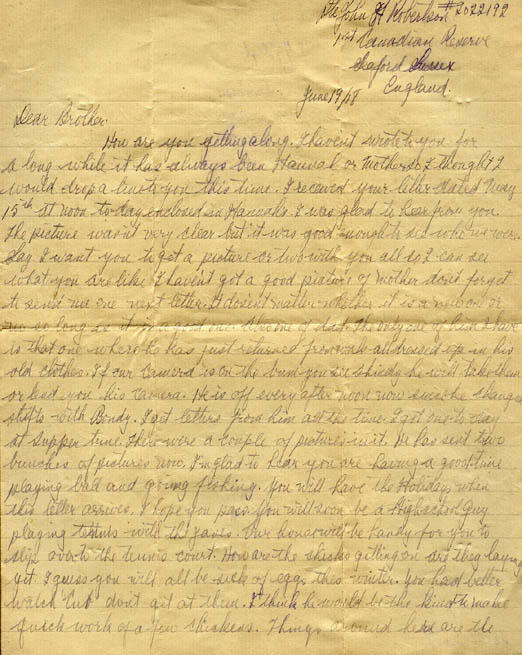 Pte John H Robertson #2022192
1st Canadian Reserve
Seaford Sussex
England.
June 19/18
Dear Brother.
How are you getting along. I havent wrote to you for
a long while it has always been Hannah or Mother so I thought I
would drop a line to you this time. I received your letter dated May
15th at noon to-day enclosed in Hannahs. I was glad to hear from you.
The picture wasn't very clear but it was good enough to see who we were.
Say I want you to get a picture or two with you all so I can see
what you are like I haven't got a good picture of Mother don't forget
to send me one next letter. It doesnt matter whether it is a new one or
so long as it is a good one. Also one of dad. The only one of him I have
is that one where he has just returned from work all dressed up in his
old clothes. If our camera is on the bum you see he will take them
or lend you his camera. He is off every after noon now since he changed
shifts with Bondy. I get letters from him all the time. I got one to day
at supper time. There were a couple of pictures in it. He has sent two
bunches of pictures now. I'm glad to hear you are having a good time
playing ball and going fishing. You will have the Holidays when
this letter arrives. I hope you pass you will soon be a Highschool Guy
playing tennis with the Janes. Our house will be handy for you to
slip over to the tennis court. How are the chicks getting on are they laying
yet. I guess you will all be sick of eggs this winter. You had better
watch Cub dont get at them. I think he would be the kind to make
quick work of a few chickens. Things around here are the